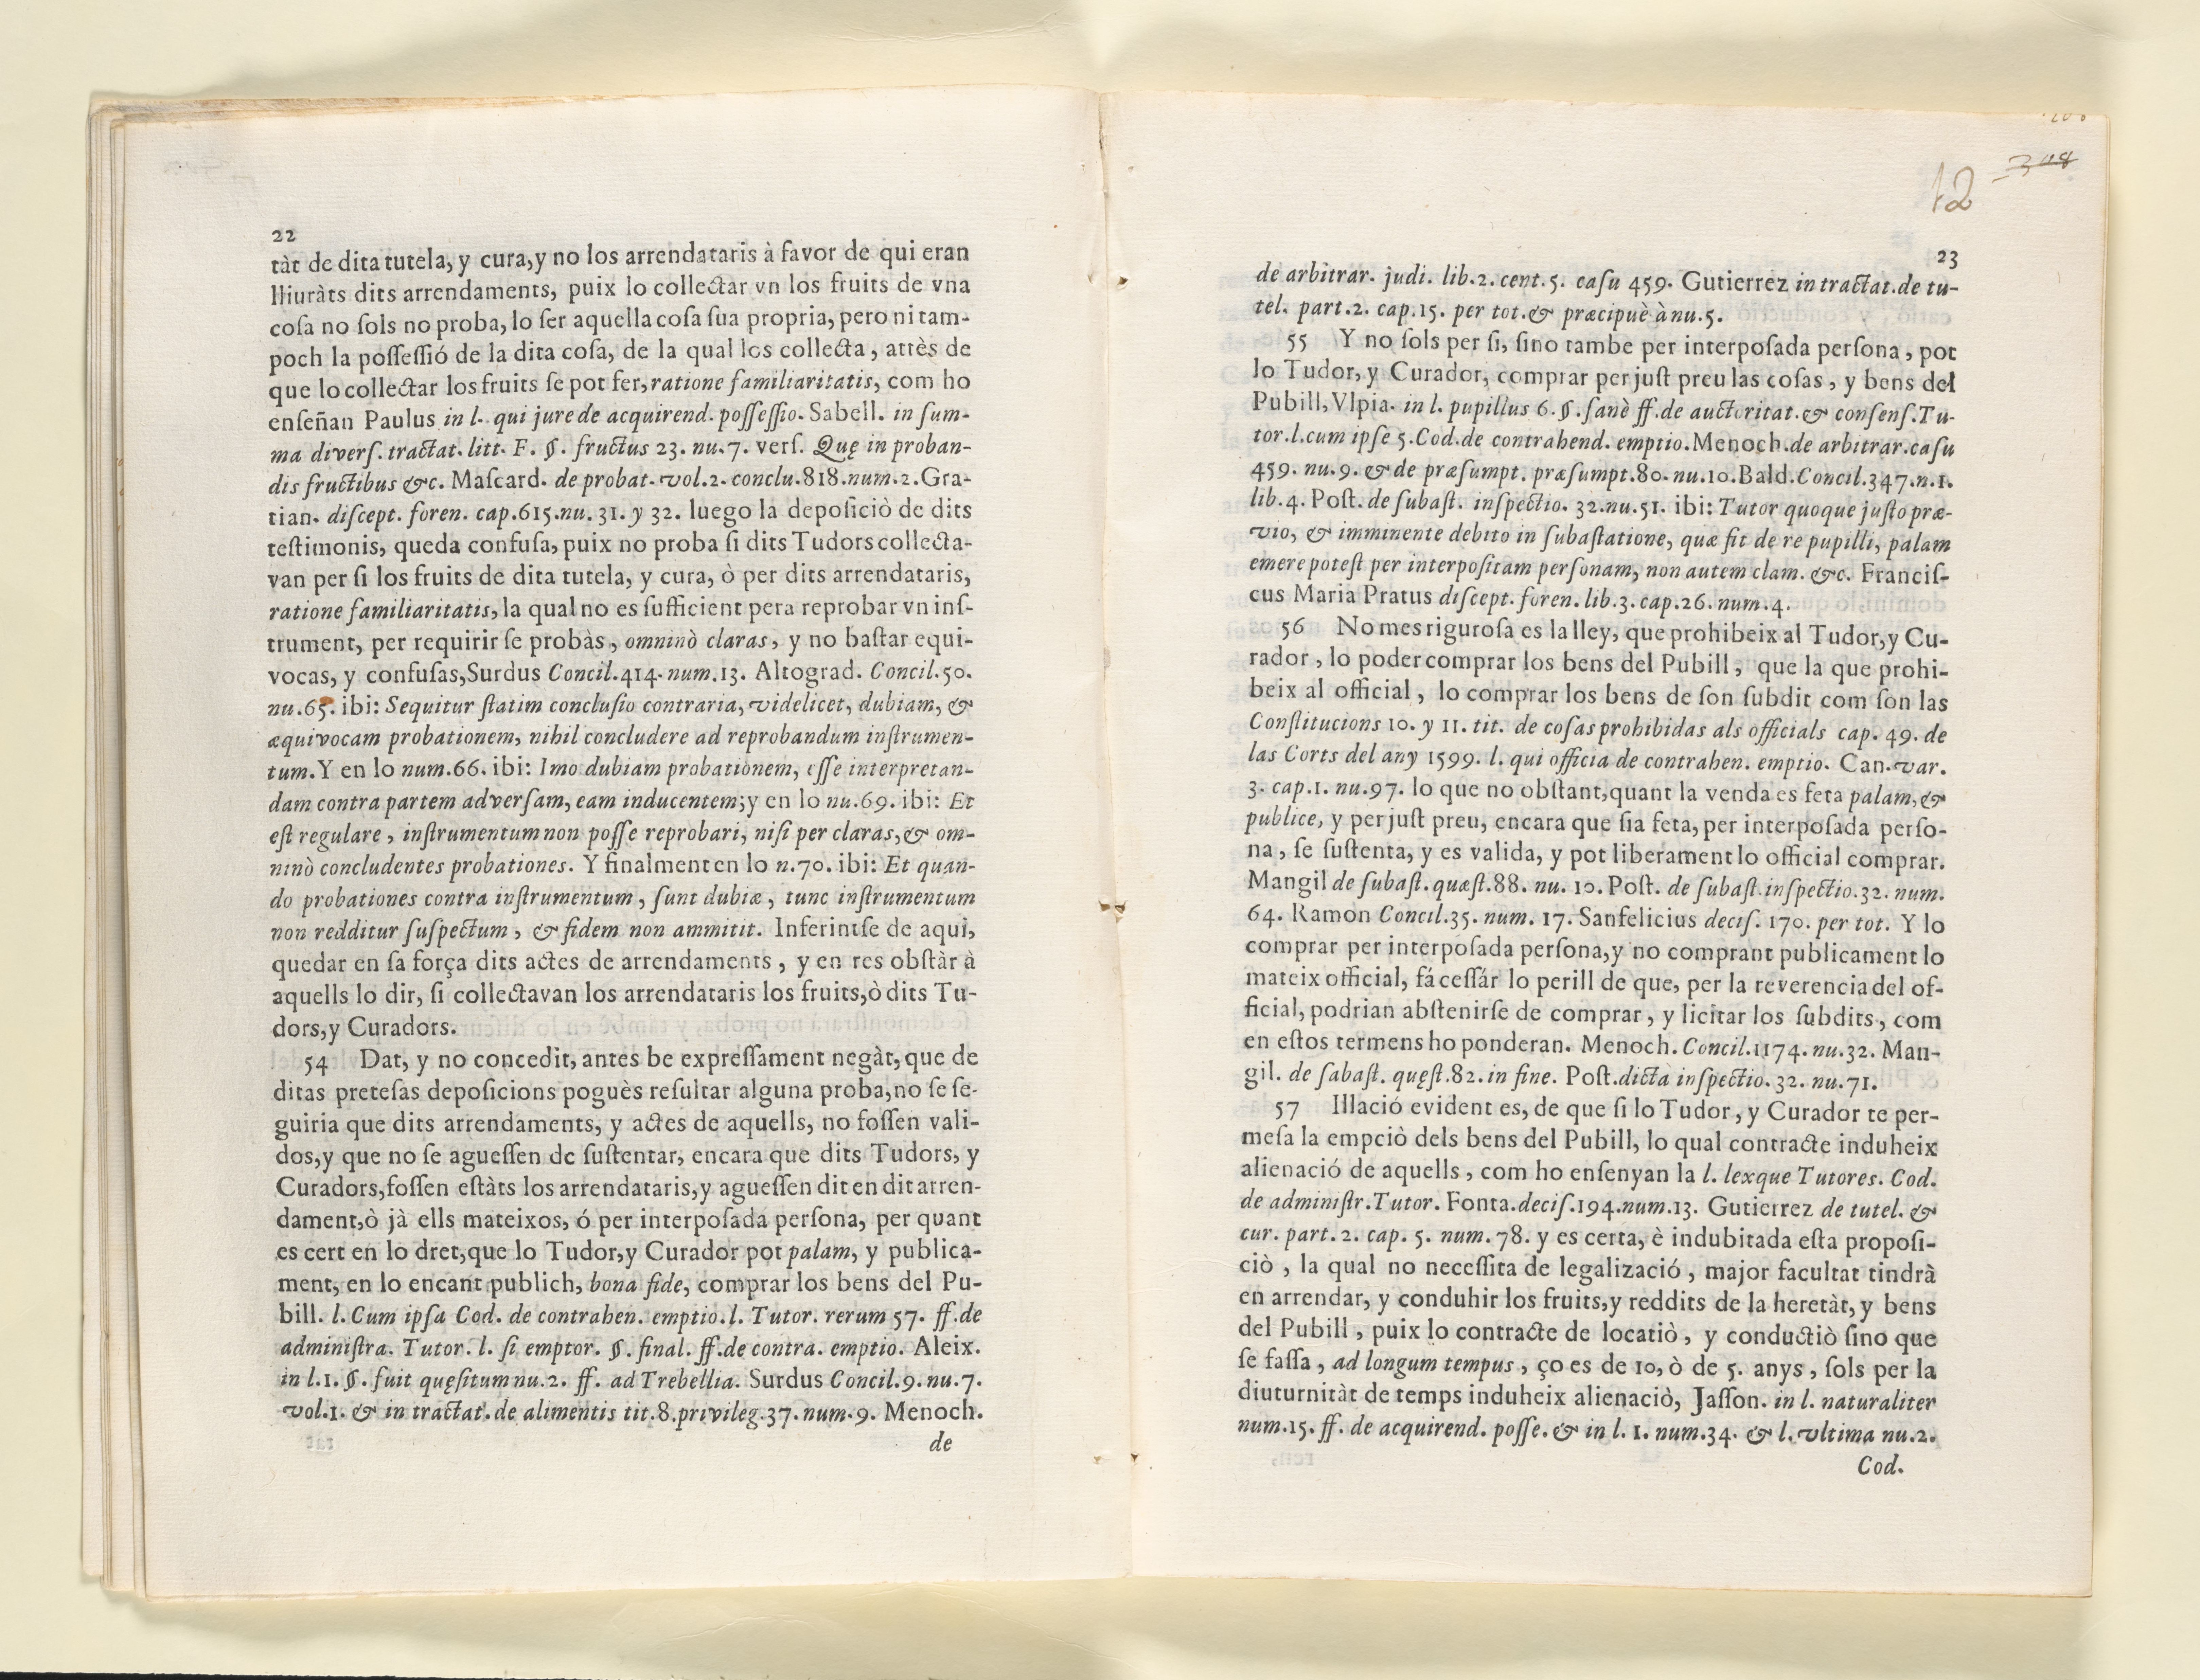 22
tàt de dita tutela, y cura, y no los arrendataris à favor de qui eran
lliuràts dits arrendaments, puix lo collectar vn los fruits de vna
coſa no ſols no proba, lo ſer aquella coſa ſua propria, pero ni tam-
poch la poſſeſſió de la dita coſa, de la qual los collecta, attès de
que lo collectar los fruits ſe pot fer, ratione familiaritatis, com ho
enſeñan Paulus in l. qui jure de acquirend. poſſeſſio. Sabell. in ſum-
ma diverſ. tractat. litt. F. §. fructus 23. nu. 7. verſ. Quę in proban-
dis fructibus &c. Maſcard. de probat. vol. 2. conclu. 818. num. 2. Gra-
tian. diſcept. foren. cap. 615. nu. 31. y 32. luego la depoſiciò de dits
teſtimonis, queda confuſa, puix no proba ſi dits Tudors collecta-
van per ſi los fruits de dita tutela, y cura, ò per dits arrendataris,
ratione familiaritatis, la qual no es ſufficient pera reprobar vn inſ-
trument, per requirir ſe probàs, omninò claras, y no baſtar equi-
vocas, y confuſas, Surdus Concil. 414. num. 13. Altograd. Concil. 50.
nu. 65. ibi: Sequitur ſtatim concluſio contraria, videlicet, dubiam, &
æquivocam probationem, nihil concludere ad reprobandum inſtrumen-
tum. Y en lo num. 66. ibi: Imo dubiam probationem, eſſe interpretan-
dam contra partem adverſam, eam inducentem; y en lo nu. 69. ibi: Et
eſt regulare, inſtrumentum non poſſe reprobari, niſi per claras, & om-
ninò concludentes probationes. Y finalment en lo n. 70. ibi: Et quan-
do probationes contra inſtrumentum, ſunt dubiæ, tunc inſtrumentum
non redditur ſuſpectum, & fidem non ammitit. Inferintſe de aquì,
quedar en ſa força dits actes de arrendaments, y en res obſtàr à
aquells lo dir, ſi collectavan los arrendataris los fruits, ò dits Tu-
dors, y Curadors.
54 Dat, y no concedit, antes be expreſſament negàt, que de
ditas preteſas depoſicions poguès reſultar alguna proba, no ſe ſe-
guiria que dits arrendaments, y actes de aquells, no foſſen vali-
dos, y que no ſe agueſſen de ſuſtentar, encara que dits Tudors, y
Curadors, foſſen eſtàts los arrendataris, y agueſſen dit en dit arren-
dament, ò jà ells mateixos, ó per interpoſada perſona, per quant
es cert en lo dret, que lo Tudor, y Curador pot palam, y publica-
ment, en lo encant publich, bona fide, comprar los bens del Pu-
bill. l. Cum ipſa Cod. de contrahen. emptio. l. Tutor. rerum 57. ff. de
adminiſtra. Tutor. l. ſi emptor. §. final. ff. de contra. emptio. Aleix.
in l. 1. §. fuit quęſitum nu. 2. ff. ad Trebellia. Surdus Concil. 9. nu. 7.
vol. 1. & in tractat. de alimentis tit. 8. privileg. 37. num. 9. Menoch.
de
12
308
23
de arbitrar. judi. lib. 2. cent. 5. caſu 459. Gutierrez in tractat. de tu-
tel. part. 2. cap. 15. per tot. & præcipuè à nu. 5.
55 Y no ſols per ſi, ſino tambe per interpoſada perſona, pot
lo Tudor, y Curador, comprar per juſt preu las coſas, y bens del
Pubill, Vlpia. in l. pupillus 6. §. ſanè ff. de auctoritat. & conſenſ. Tu-
tor. l. cum ipſe 5. Cod. de contrahend. emptio. Menoch. de arbitrar. caſu
459. nu. 9. & de præſumpt. præſumpt. 80. nu. 10. Bald. Concil. 347. n. 1.
lib. 4. Poſt. de ſubaſt. inſpectio. 32. nu. 51. ibi: Tutor quoque juſto præ-
vio, & imminente debito in ſubaſtatione, quæ fit de re pupilli, palam
emere poteſt per interpoſitam perſonam, non autem clam. &c. Franciſ-
cus Maria Pratus diſcept. foren. lib. 3. cap. 26. num. 4.
56 No mes riguroſa es la lley, que prohibeix al Tudor, y Cu-
rador, lo poder comprar los bens del Pubill, que la que prohi-
beix al official, lo comprar los bens de ſon ſubdit com ſon las
Conſtitucions 10. y 11. tit. de coſas prohibidas als officials cap. 49. de
las Corts del any 1599. l. qui officia de contrahen. emptio. Can. var.
3. cap. 1. nu. 97. lo que no obſtant, quant la venda es feta palam, &
publice, y per juſt preu, encara que ſia feta, per interpoſada perſo-
na, ſe ſuſtenta, y es valida, y pot liberament lo official comprar.
Mangil de ſubaſt. quæſt. 88. nu. 10. Poſt. de ſubaſt. inſpectio. 32. num.
64. Ramon Concil. 35. num. 17. Sanfelicius deciſ. 170. per tot. Y lo
comprar per interpoſada perſona, y no comprant publicament lo
mateix official, fá ceſſár lo perill de que, per la reverencia del of-
ficial, podrian abſtenirſe de comprar, y licitar los ſubdits, com
en eſtos termens ho ponderan. Menoch. Concil. 1174. nu. 32. Man-
gil. de ſabaſt. quęſt. 82. in fine. Poſt. dicta inſpectio. 32. nu. 71.
57 Illació evident es, de que ſi lo Tudor, y Curador te per-
meſa la empciò dels bens del Pubill, lo qual contracte induheix
alienació de aquells, com ho enſenyan la l. lexque Tutores. Cod.
de adminiſtr. Tutor. Fonta. deciſ. 194. num. 13. Gutierrez de tutel. &
cur. part. 2. cap. 5. num. 78. y es certa, è indubitada eſta propoſi-
ciò, la qual no neceſſita de legalizació, major facultat tindrà
en arrendar, y conduhir los fruits, y reddits de la heretàt, y bens
del Pubill, puix lo contracte de locatiò, y conductiò ſino que
ſe faſſa, ad longum tempus, ço es de 10, ò de 5. anys, ſols per la
diuturnitàt de temps induheix alienaciò, Jaſſon. in l. naturaliter
num. 15. ff. de acquirend. poſſe. & in l. 1. num. 34. & l. vltima nu. 2.
Cod.